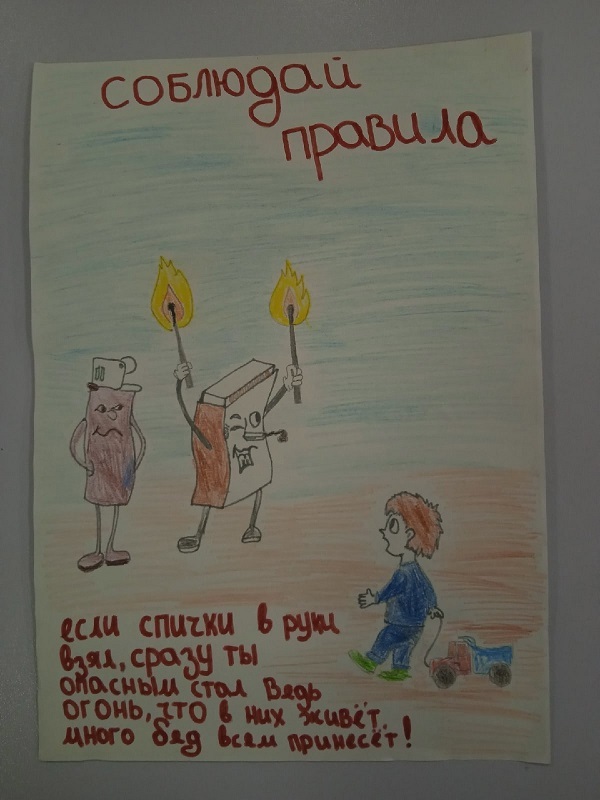 СОБЛЮДАЙ
ПРАВИЛА
если спички в руки
взял, сразу ты
опасным стал Ведь
огонь, что в них живёт
много бед всем принесёт!